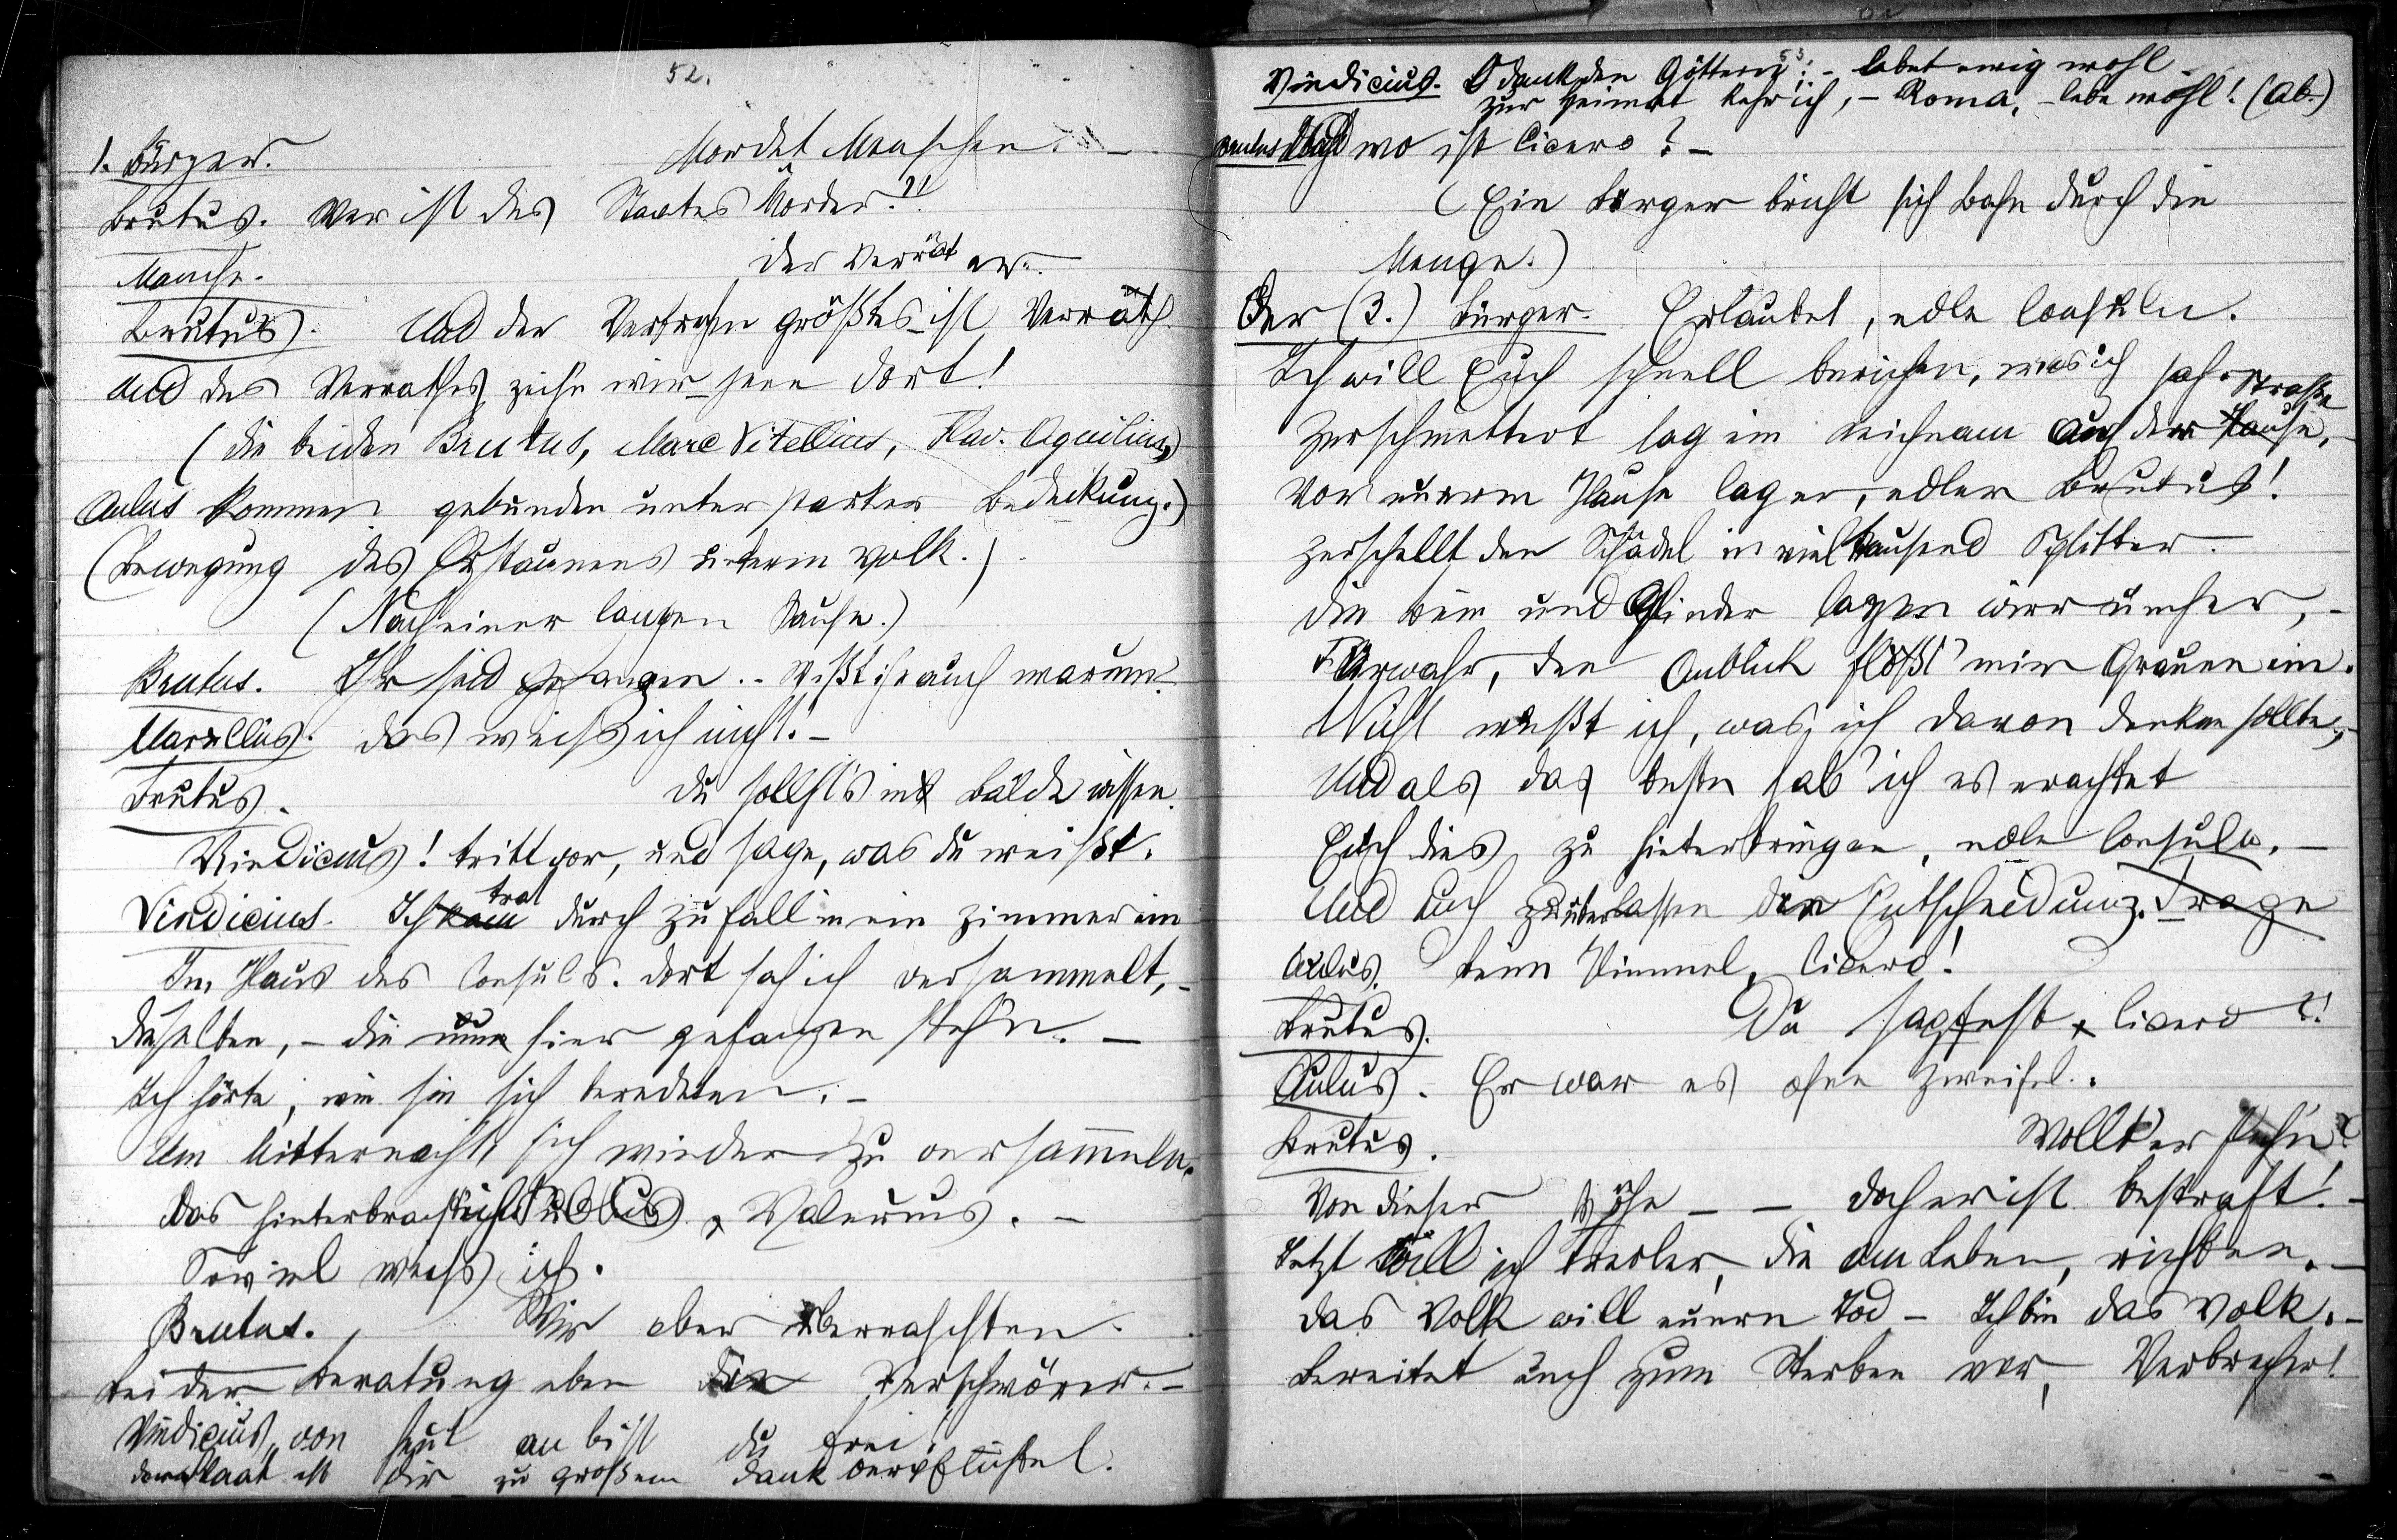 52.
1. Bürger. Mordet Menschen. –
Brutus. Wer ist des Staates Mörder?!
Manche. Der Verräter.
Brutus. Und der Verbrechen größtes ist Verrath.
Und des Verrathes zeih'n wir jene dort!
(Die beiden Brutus, Marc Vitellius, Flav. Aquilius,
Aulus kommen gebunden unter starker Bedeckung.)
(Bewegung des Erstaunens unterm Volk.)
(Nach einer langen Pause.)
Brutus. Ihr seid gefangen. – Wißt ihr auch warum?
Marcellus. Das weiß ich nicht! –
Brutus. Du sollst's in Bälde wissen.
Vindicius! tritt vor, und sage, was du weißt.
Vindicius. Ich kam trat durch Zufall in ein Zimmer ein
Im Haus des Consuls. Dort sah ich versammelt, –
Dieselben, – die nun hier gefangen steh'n. –
Ich hörte, wie sie sich beredeten. –
Um Mitternacht sich wieder zu versammeln.
Das hinterbracht ich Publius Valerius. –
Soviel weiß ich.
Brutus. Wir aber überraschten
Bei der Beratung eben die Verschwörer. –
Vindicius, von heut an bist du frei!
der Staat ist dir zu großem Dank verpflichtet.
53
Vindicius. O dank den Göttern! – lebet ewig wohl
zur Heimat kehr ich, – Roma, – lebe wohl! (Ab.)
Brutus. Und wo ist Cicero? –
(Ein Bürger bricht sich Bahn durch die
Menge.)
Der (3.) Bürger. Erlaubet, edle Consuln.
Ich will Euch schnell berichten, was ich sah.
Zerschmettert lag ein Leichnam auf der Hause, Straße
Vor eurem Hause lag er, edler Brutus!
Zerschellt den Schädel in vieltausend Splitter.
Die Bein und Glieder lagen wirr umher, –
Fürwahr, der Anblick flößt' mir Grauen ein.
Nicht wußt ich, was ich davon denken sollte, –
Und als das beste hab' ich es erachtet
Euch dies zu hinterbringen, edle Consuln. –
Und Euch zu überlassen die Entscheidung. Frage
Aulus. Beim Himmel, Cicero!
Brutus. Du sagtest, Cicero?!
Aulus. Er war es ohne Zweifel.
Brutus. Wollt' er flieh'n?
Von dieser Höhe – – doch er ist bestraft! –
Jetzt will ich Frevler, die am Leben, richten. –
Das Volk will euern Tod – Ich bin das Volk. –
Bereitet euch zum Sterben vor, Verbrecher!